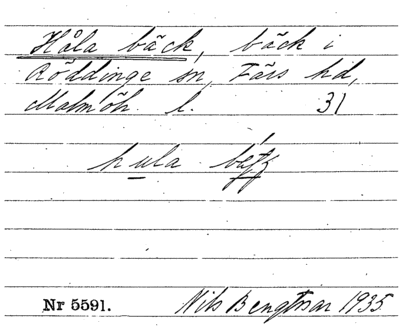 Håla bäck, bäck i
Röddinge sn, Färs hd,
Malmöh. l. 31
hula
Nr 5591. Nils Bengtsson 1935